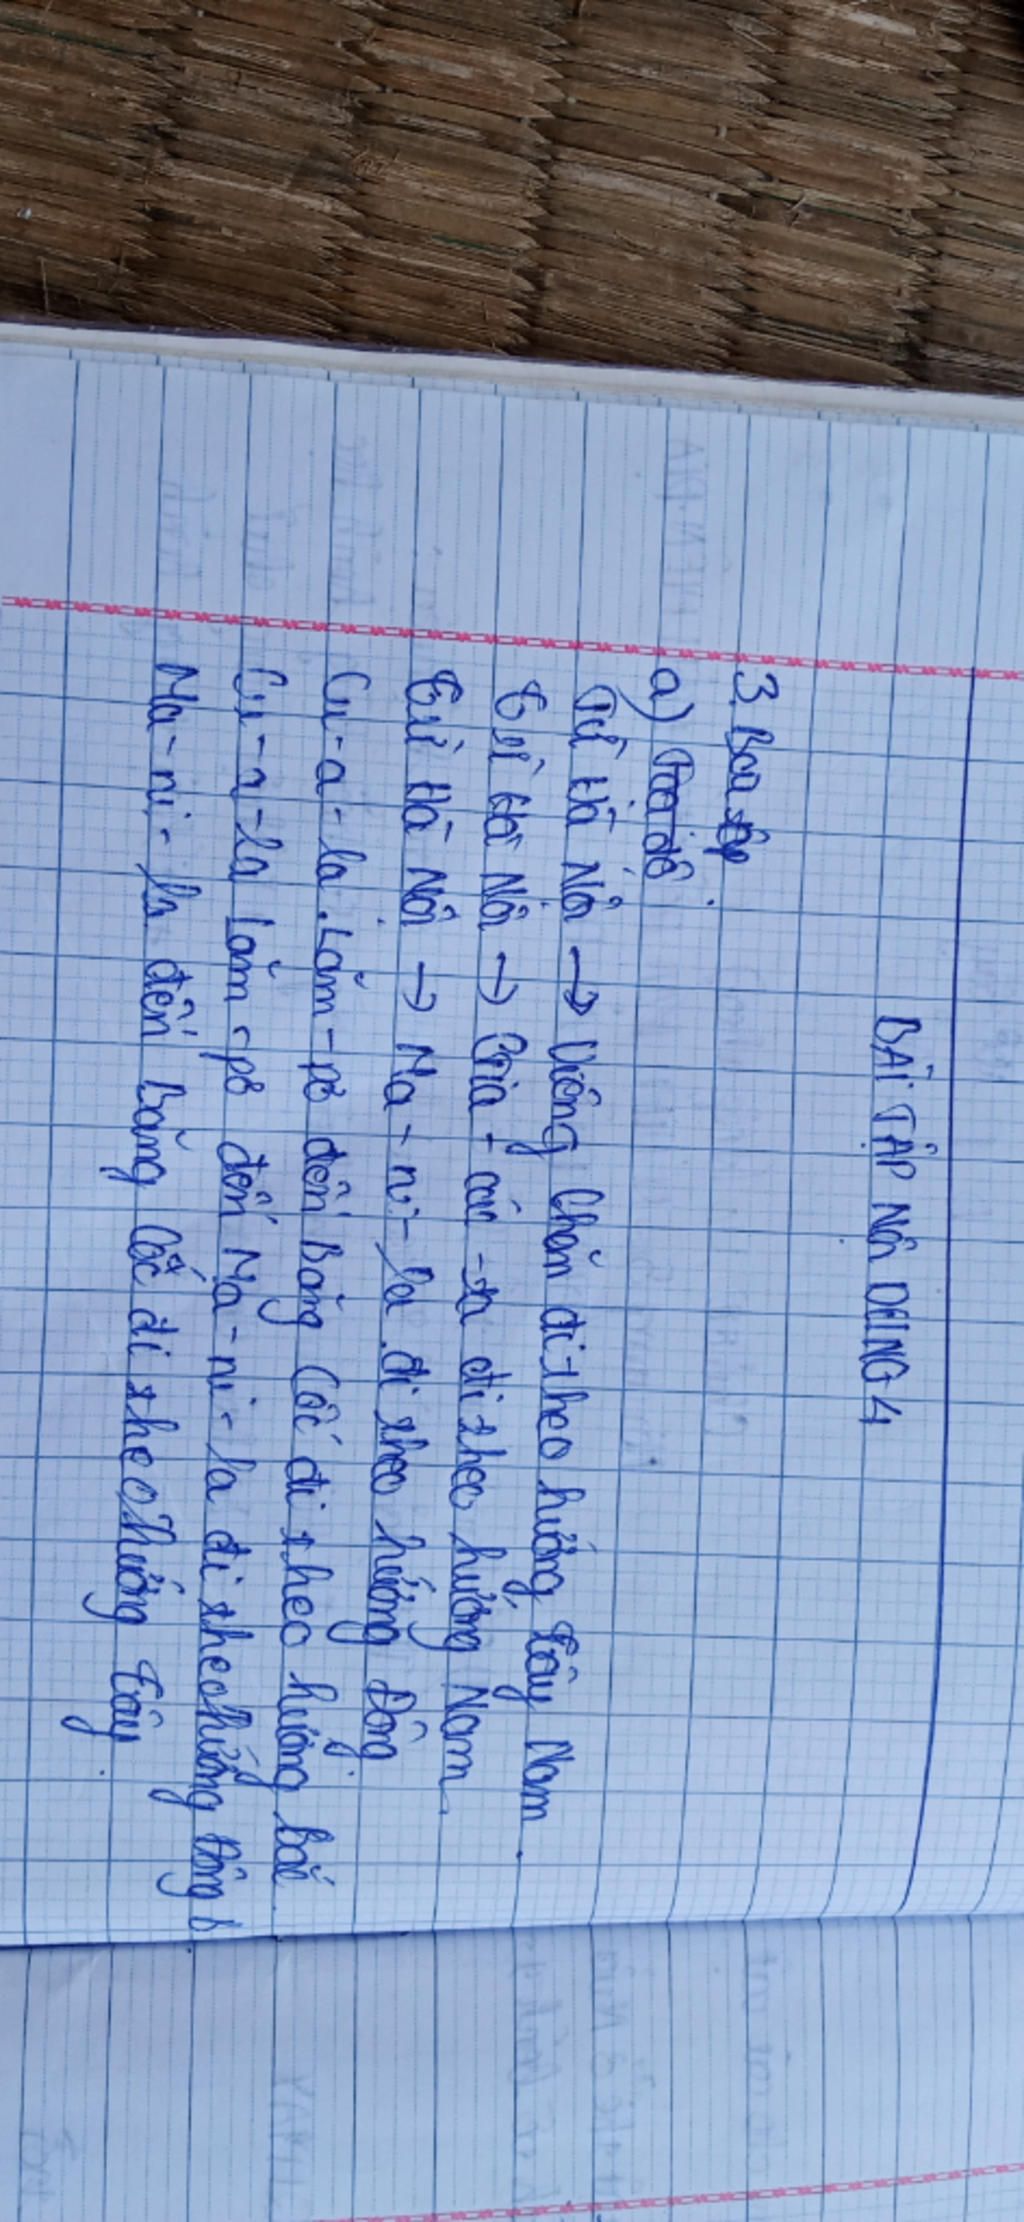 BÀI TẬP NỘI DUNG 4
3. Bài tập
a) Toạ độ
Từ Hà Nội → Viêng Chăn đi theo hướng Tây Nam.
Từ Hà Nội → Gia-các-ta đi theo hướng Nam.
Từ Hà Nội → Ma-ni-la đi theo hướng Đông
Cu-a-la Lăm-pơ đến Băng Cốc đi theo hướng bắc.
Cu-a-la Lăm-pơ đến Ma-ni-la đi theo hướng Đông b
Ma-ni-la đến Băng Cốc đi theo hướng Tây.